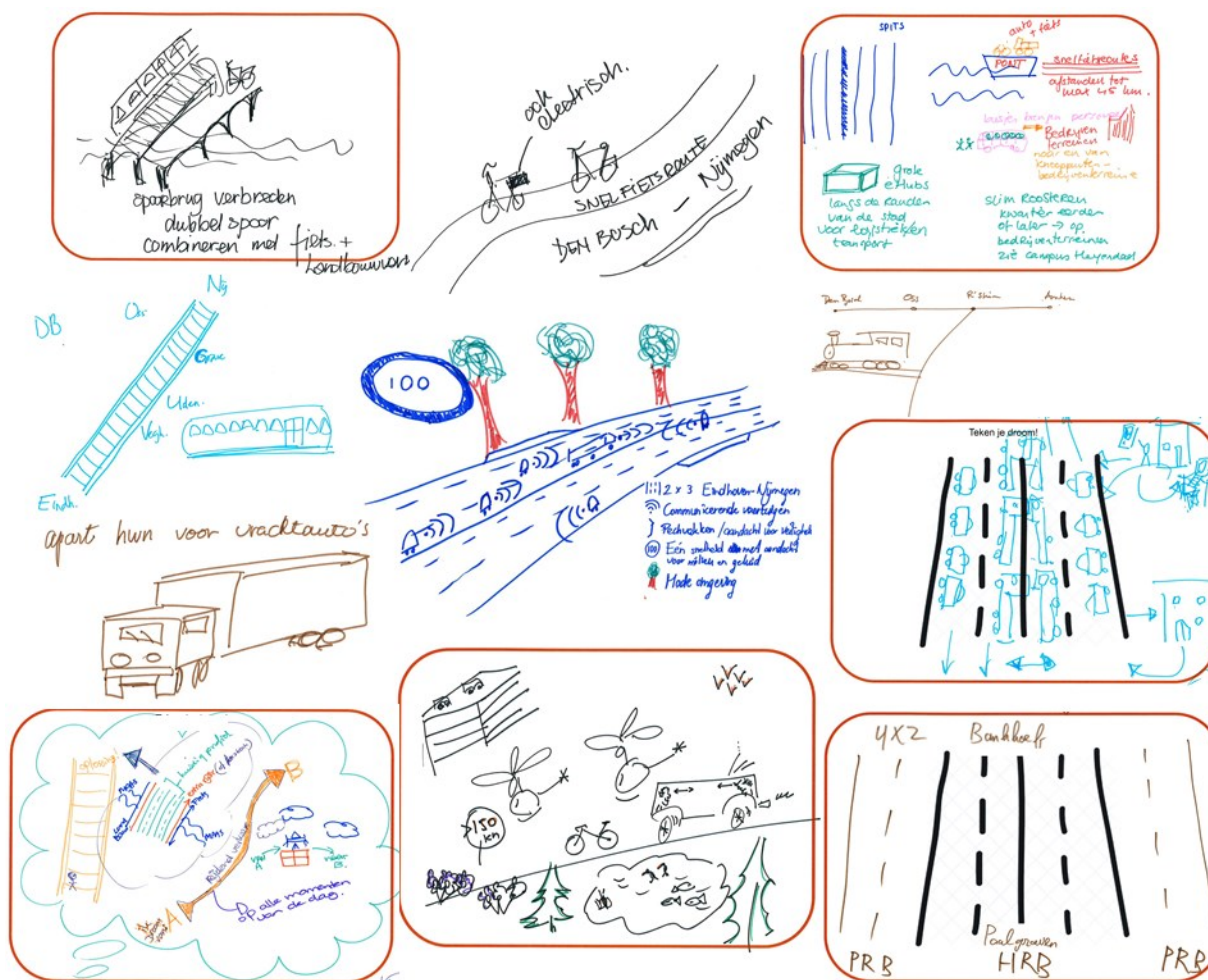 spoorbrug verbreden
dubbel spoor
combineren met fiets +
ook
electrisch.
SNELFIETSROUTE
DEN BOSCH — Nijmegen
SPITS
auto
+ fiets
PONT
snelfietsroutes
afstanden tot
max 45 km.
Bedrijven
terreinen
naar en van
knooppunten -
bedrijventerreine
grote
eHubs
langs de randen
van de stad
voor logistieken
transport
slim Roosteren
kwartier eerder
of later → op
bedrijventerreinen
zie campus Heyendaal
Oss
DB
Nij
Oss
Grave
Uden.
Vegh.
Eindh.
100
2 x 3 Eindhoven-Nijmegen
Communicerende voertuigen
Pechvakken / aandacht voor veiligheid
100 Eén snelheid met aandacht
voor milieu en geluid
Mooie omgeving
Teken je droom!
apart hwn voor vrachtauto's
B
A
Rijdend
alle momenten
van de dag.
>150
km
4x2 Bankhoef
Paalgraven
PRB HRB PRB